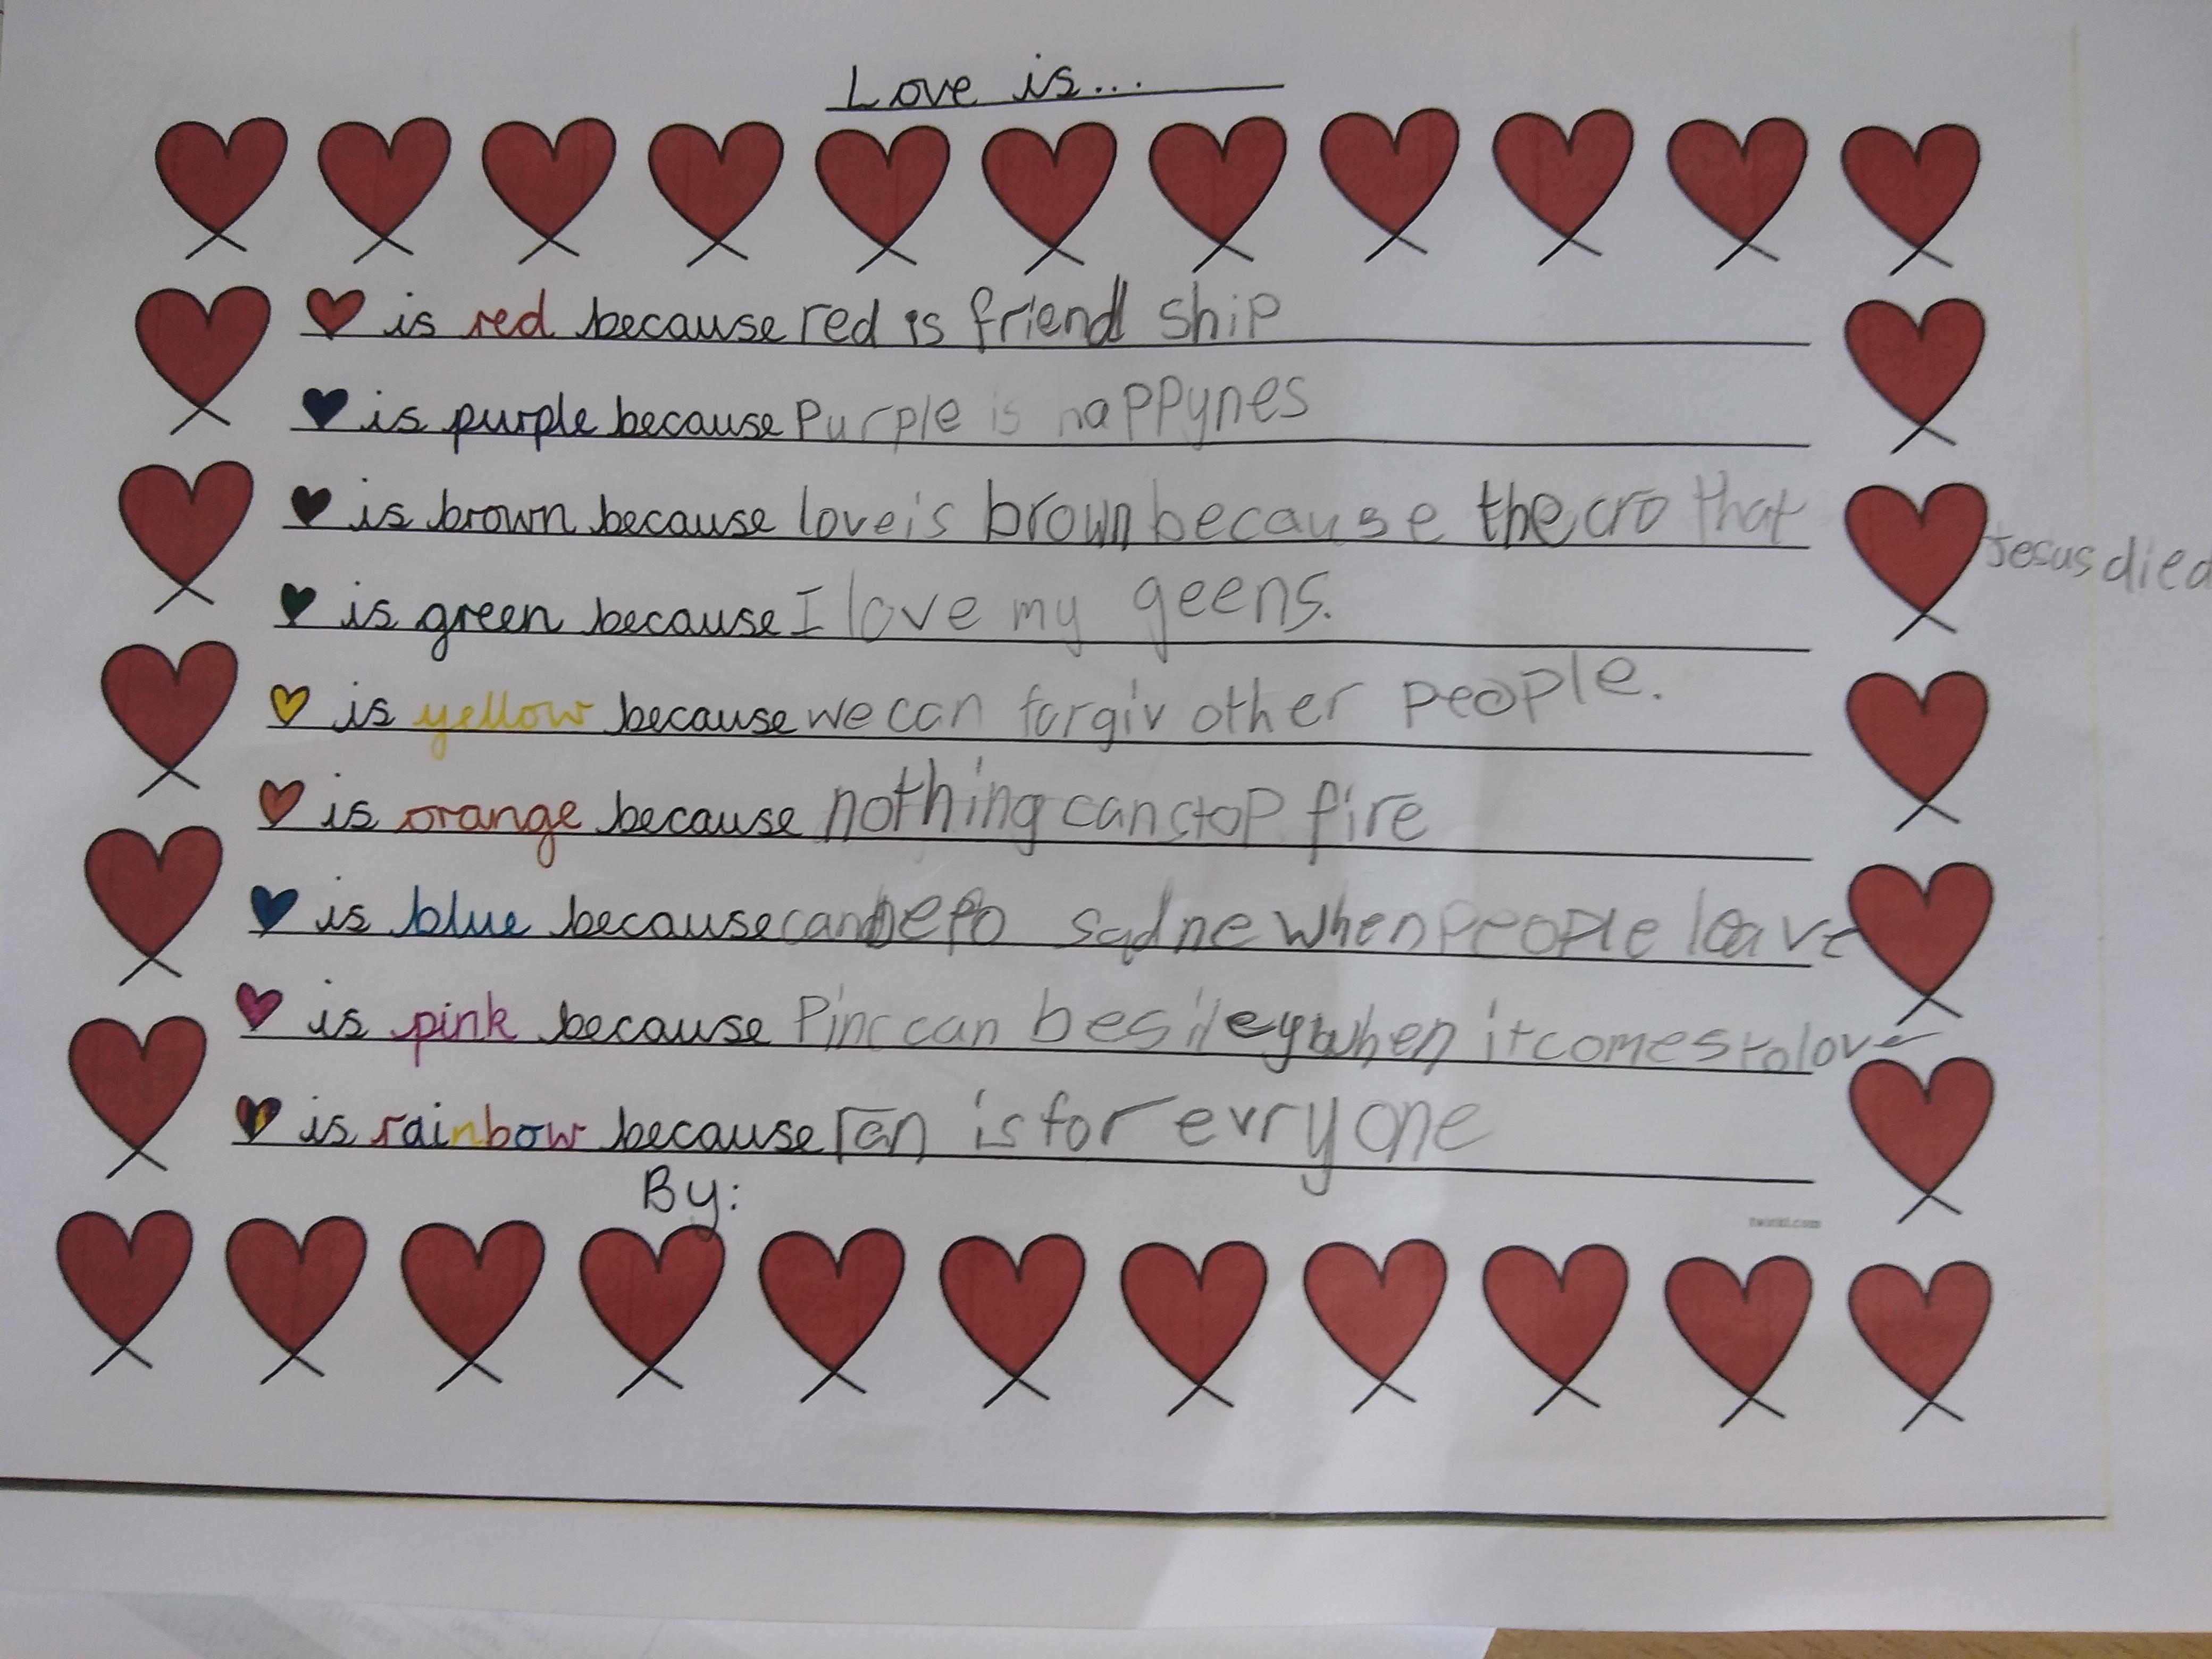 Love is...
❤ is red because red is friend ship
❤ is purple because Purple is happynes
❤ is brown because love is brown because the cro that Jesus died
❤ is green because I love my geens.
❤ is yellow because we can forgiv other people.
❤ is orange because nothing can stop fire
❤ is blue because can be sadne when people leave
❤ is pink because Pinc can be sileyt when it comes to love
❤ is rainbow because ran is for evry one
By:
twinkl.com